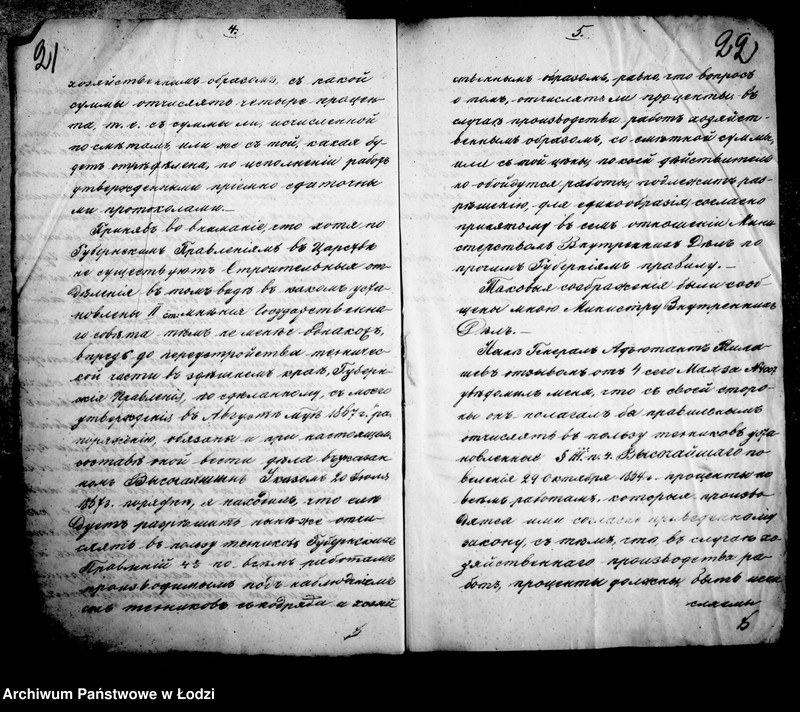 4.
21
хозяйственнымъ образомъ, съ какой
суммы отчислять четыре процен-
та, т. е. съ суммы ли, исчисленной
по смѣтамъ, или же съ той, какая бу-
детъ опредѣлена, по исполненіи работъ
утвержденными пріемно сдаточны-
ми протоколами.—
Принявъ во вниманіе, что хотя по
Губернскимъ Правленіямъ въ Царствѣ
не существуютъ Строительныя от-
дѣленія въ томъ видѣ въ какомъ уста-
новлены II ст: мнѣнія Государственна-
го совѣта тѣмъ не менѣе однакожъ,
впредь до переустройства техничес-
кой части въ здѣшнемъ краѣ, Губерн-
скія Правленія, по сдѣланному, съ моего
утвержденія въ Августѣ мцѣ 1867 г. ра-
поряженію, обязаны и при настоящемъ
составѣ оной вести дѣла въ указан-
номъ Высочайшимъ Указомъ 20 Іюля
1867 г. порядкѣ, я находилъ, что слѣ-
дуетъ разрѣшить нынѣ же отчи-
слять въ пользу техниковъ Губернскихъ
Правленій 4% по всѣмъ работамъ
производимымъ подъ наблюденіемъ
сихъ техниковъ съ подряда и хозяй
5.
22
ственнымъ образомъ, равно, что вопросъ
о томъ, отчислять ли проценты въ
случаѣ производства работъ хозяйст-
веннымъ образомъ, со смѣтной суммы,
или съ той цѣны, по коей дѣйствитель-
но обойдутся работы, подлежитъ раз-
рѣшенію, для единообразія, согласно
принятому въ семъ отношеніи Мини-
стерствомъ Внутреннихъ Дѣлъ по
прочимъ Губерніямъ правилу.—
Таковыя соображенія были сооб-
щены мною Министру Внутреннихъ
Дѣлъ.—
Нынѣ Генералъ Адъютантъ Тима-
шевъ отзывомъ отъ 4 сего Мая за №
увѣдомилъ меня, что съ своей сторо-
ны онъ полагалъ бы правильнымъ
отчислять въ пользу техниковъ уста
новленные § III. п. 4. Высочайшаго по
велѣнія 29 Октября 1864 г. проценты по
всѣмъ работамъ, которыя произво-
дятся ими согласно приведенному
закону, съ тѣмъ, что въ случаѣ хо-
зяйственнаго производства ра-
ботъ, проценты должны быть исчи
сляемы